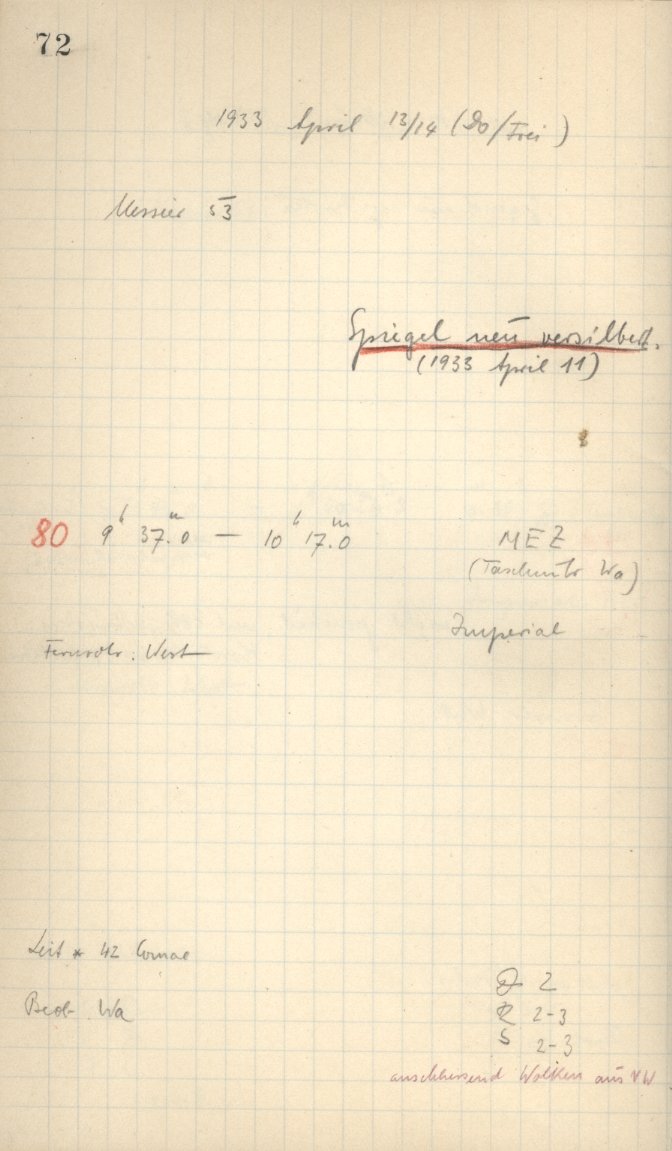 72
1933 April 13/14 (Do/Frei)
Messier 53
Spiegel neu versilbert.
(1933 April 11)
80 9h 37.m0 — 10h 17.m0 MEZ
(Taschenuhr Wa)
Imperial
Fernrohr: West
Leit * 42 Comae
2
Beob Wa
R 2-3
S 2-3
anschliessend Wolken aus NW